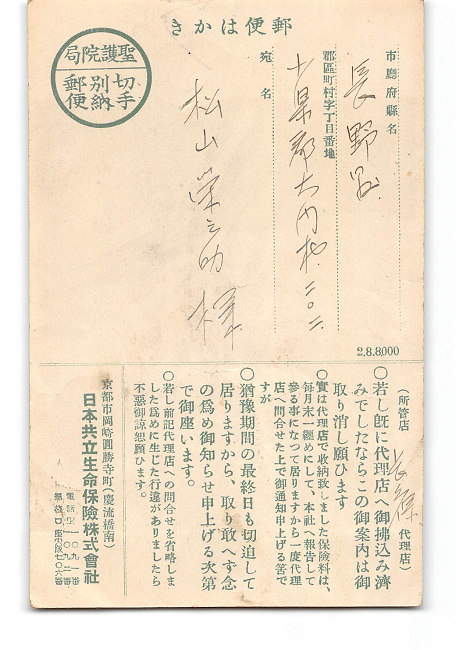 郵便はかき
聖護院局
切手
別納
郵便
市廳府縣名
長野
郡區町村字丁目番地
小県郡大内村二〇二
宛名
松山栄之助様
2.8.8,000
(所管店
代理店)
〇若し旣に代理店へ御拂込み濟
みでしたならこの御案内は御
取り消し願ひます
〇實は代理店で收納致しました保險料は、
每月末一纏めにして、本社へ報告して
參る事になつて居りますから一度代理
店へ問合せた上で御通知申上げる筈で
すが
〇猶豫期間の最終日も切迫して
居りますから、取り敢へず念
の爲め御知らせ申上げる次第
で御座います。
〇若し前記代理店への問合せを省略しま
した爲めに生じた行違がありましたら
不惡御諒恕願ひます。
京都市岡崎圓勝寺町(慶流橋南)
日本共立生命保險株式會社